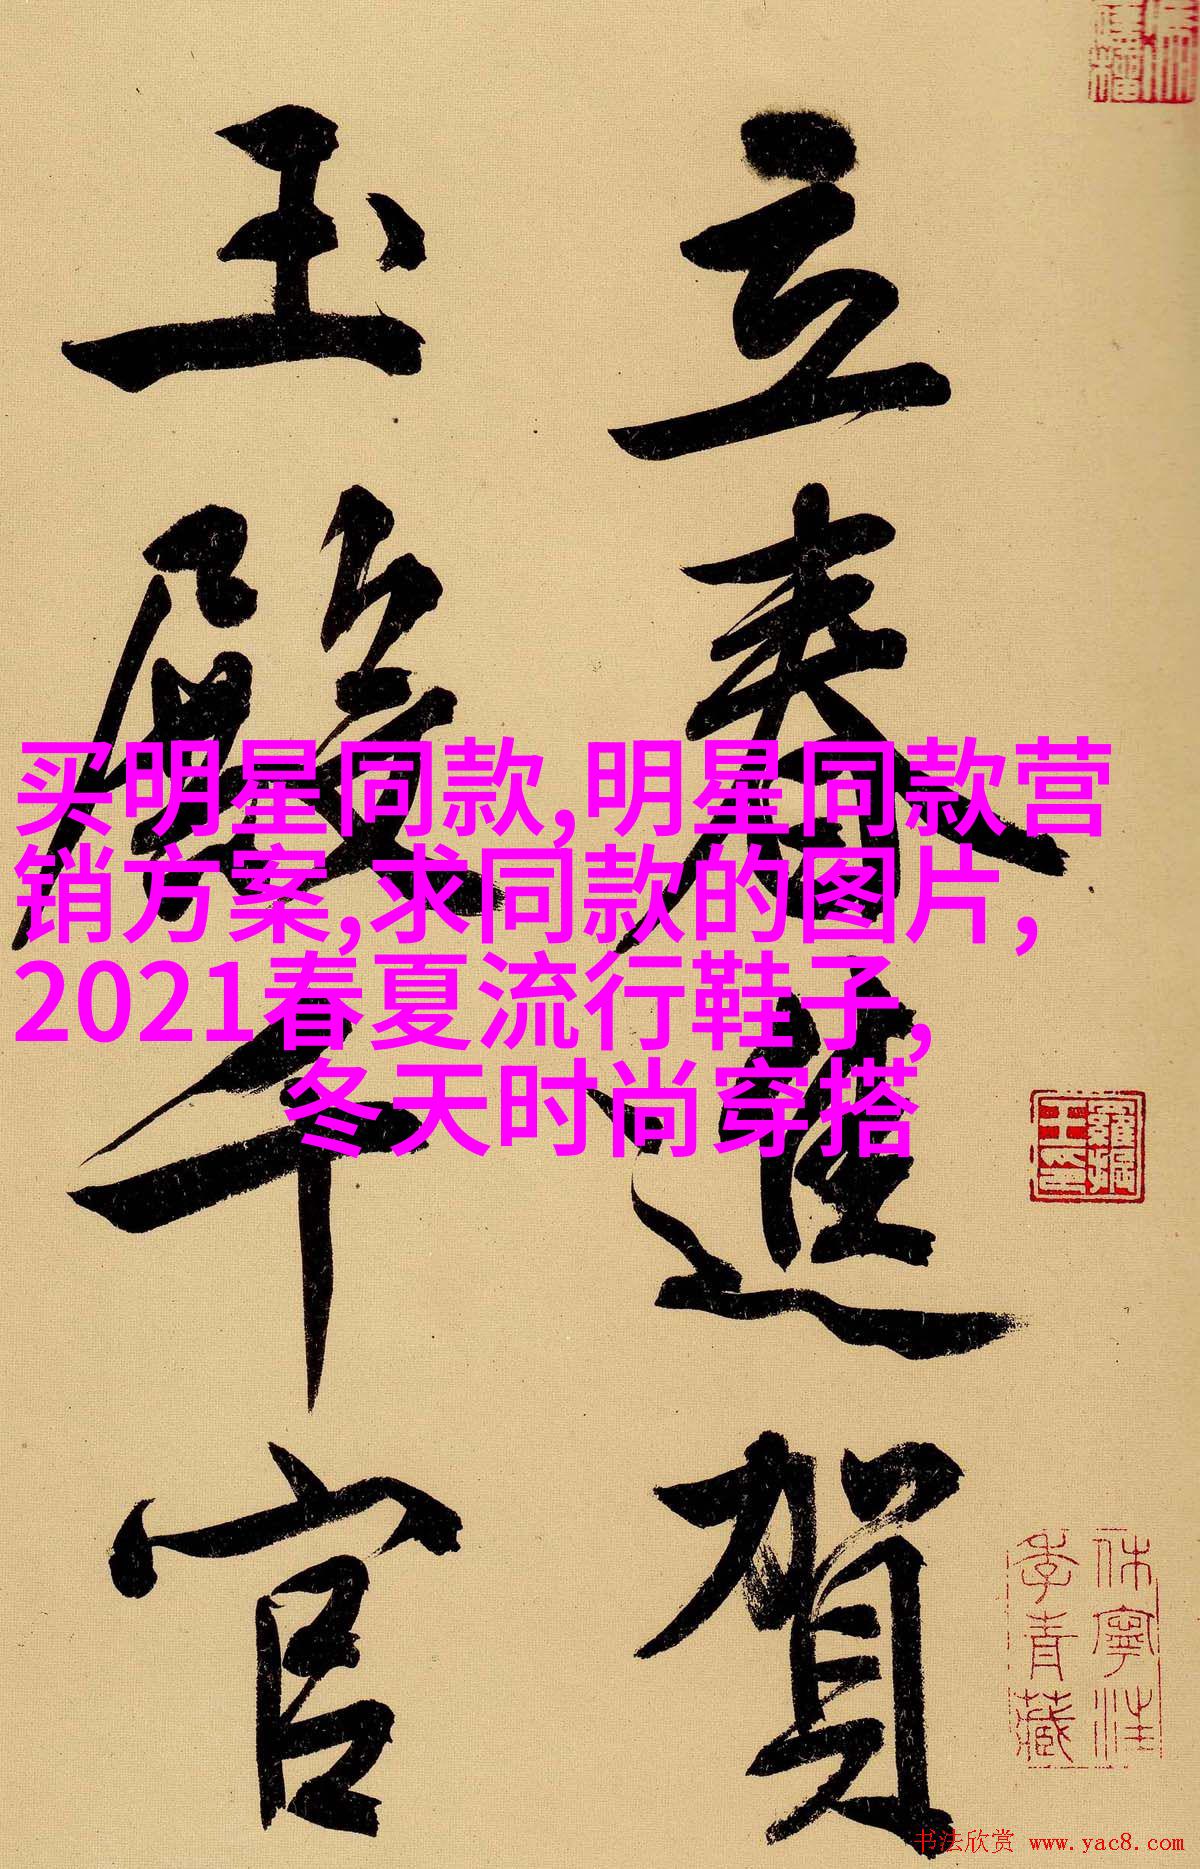 立春進賀
玉殿千官
买明星同款,明星同款营
销方案,求同款的图片,
2021春夏流行鞋子,
冬天时尚穿搭
休寧汪
季青藏
书法欣赏 www.yac8.com